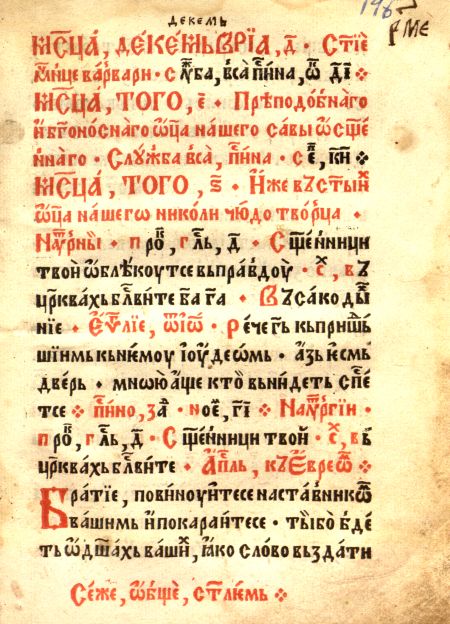 декемь
рме
Мⷭ҇ца, декемьврїа, д҃ · Ст҃їе
мⷱ҇нице варвари · слꙋжба, вса пⷭ҇ѣнна, ѿ дї҃ ❖
Мⷭ҇ца, того, є҃ · Прѣподобнаго
и бг҃оноснаго ѡц҃а нашего савы ѡсщ҃е
ннаго · Слꙋжба вса, пⷭ҇ѣнна · ❖
Мⷭ҇ца, того, ѕ҃ · Иже въ ст҃ыⷯ
ѡц҃а нашего николи чюдотворца ·
На ꙋтрⷩ҇ы · прⷪ҇к, глⷭ҇ь, д҃ · Сщ҃енници
твои ѡблѣкоутсе вь правдоу · с, въ
црⷦ҇квахь блⷭ҇вите ба҃ га҃ · Въсако дыⷯ
нїе · Еѵⷢ҇лїе, ѿ їѡⷩ҇ · Рече гь҃ кь пришьⷣ
шїимь кь нѥмоу їоудеѡмь · азь ѥсмь
дверь · мноюаще кто вьнидеть сп҃се
тсе ❖ пⷭ҇ѣнно, за · ноѥⷨ, гї҃ ❖ На лⷮꙋргїи ·
прⷪ҇к, глⷭ҇ь, д҃ · Сщ҃енници твои · с, вь
црⷦ҇квахь блⷭ҇вите · Апⷭ҇ль, къ Еврѥѡⷨ ❖
Братїе, повиноуитесе наставникѡⷨ
вашимь и покараитесе · ты бо бде
ть ѡ дш҃ахь вашиⷯ, ꙗко слово вьздати
Сеже, ѡбще, ст҃лѥмь ❖